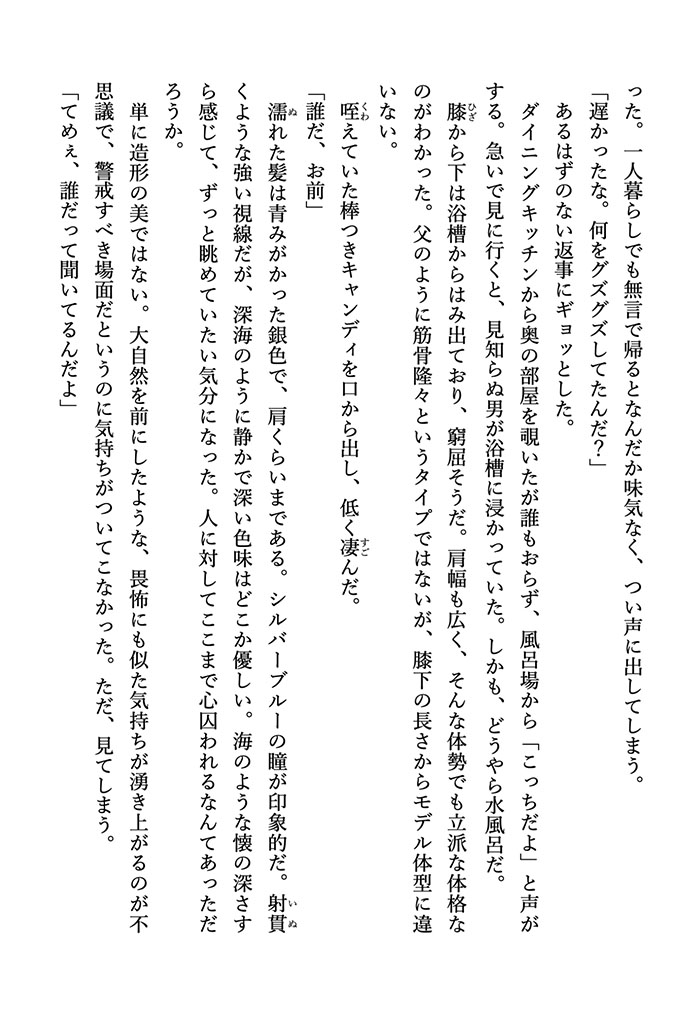 った。一人暮らしでも無言で帰るとなんだか味気なく、つい声に出してしまう。
「遅かったな。何をグズグズしてたんだ？」
あるはずのない返事にギョッとした。
ダイニングキッチンから奥の部屋を覗いたが誰もおらず、風呂場から「こっちだよ」と声が
する。急いで見に行くと、見知らぬ男が浴槽に浸かっていた。しかも、どうやら水風呂だ。
膝から下は浴槽からはみ出ており、窮屈そうだ。肩幅も広く、そんな体勢でも立派な体格な
ひざ
のがわかった。父のように筋骨隆々というタイプではないが、膝下の長さからモデル体型に違
いない。
咥えていた棒つきキャンディを口から出し、低く凄んだ。
くわ
すご
「誰だ、お前」
濡れた髪は青みがかった銀色で、肩くらいまである。シルバーブルーの瞳が印象的だ。射貫
ぬ
いぬ
くような強い視線だが、深海のように静かで深い色味はどこか優しい。海のような懐の深さす
ら感じて、ずっと眺めていたい気分になった。人に対してここまで心囚われるなんてあっただ
ろうか。
単に造形の美ではない。大自然を前にしたような、畏怖にも似た気持ちが湧き上がるのが不
思議で、警戒すべき場面だというのに気持ちがついてこなかった。ただ、見てしまう。
「てめぇ、誰だって聞いてるんだよ」